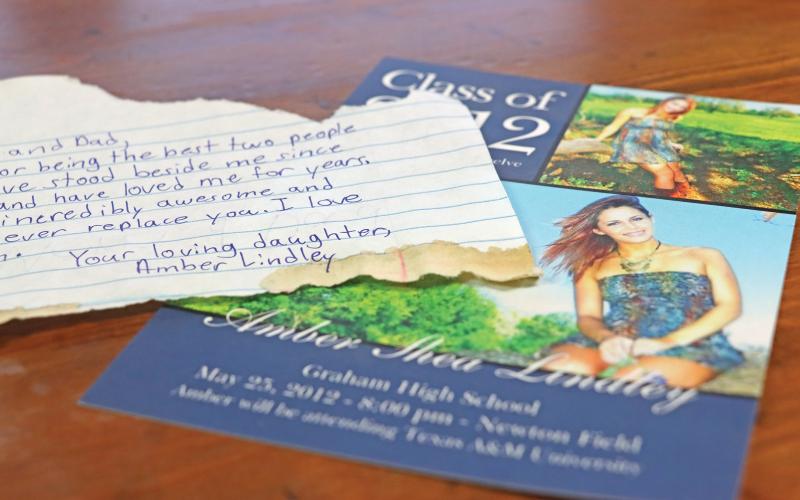 and Dad,
or being the best two people
ve stood beside me since
and have loved me for years.
incredibly awesome and
ever replace you. I love
Your loving daughter,
Amber Lindley
Class of
12
elve
Amber Shea Lindley
Graham High School
May 25, 2012 - 8:00 pm - Newton Field
Amber will be attending Texas A&M University